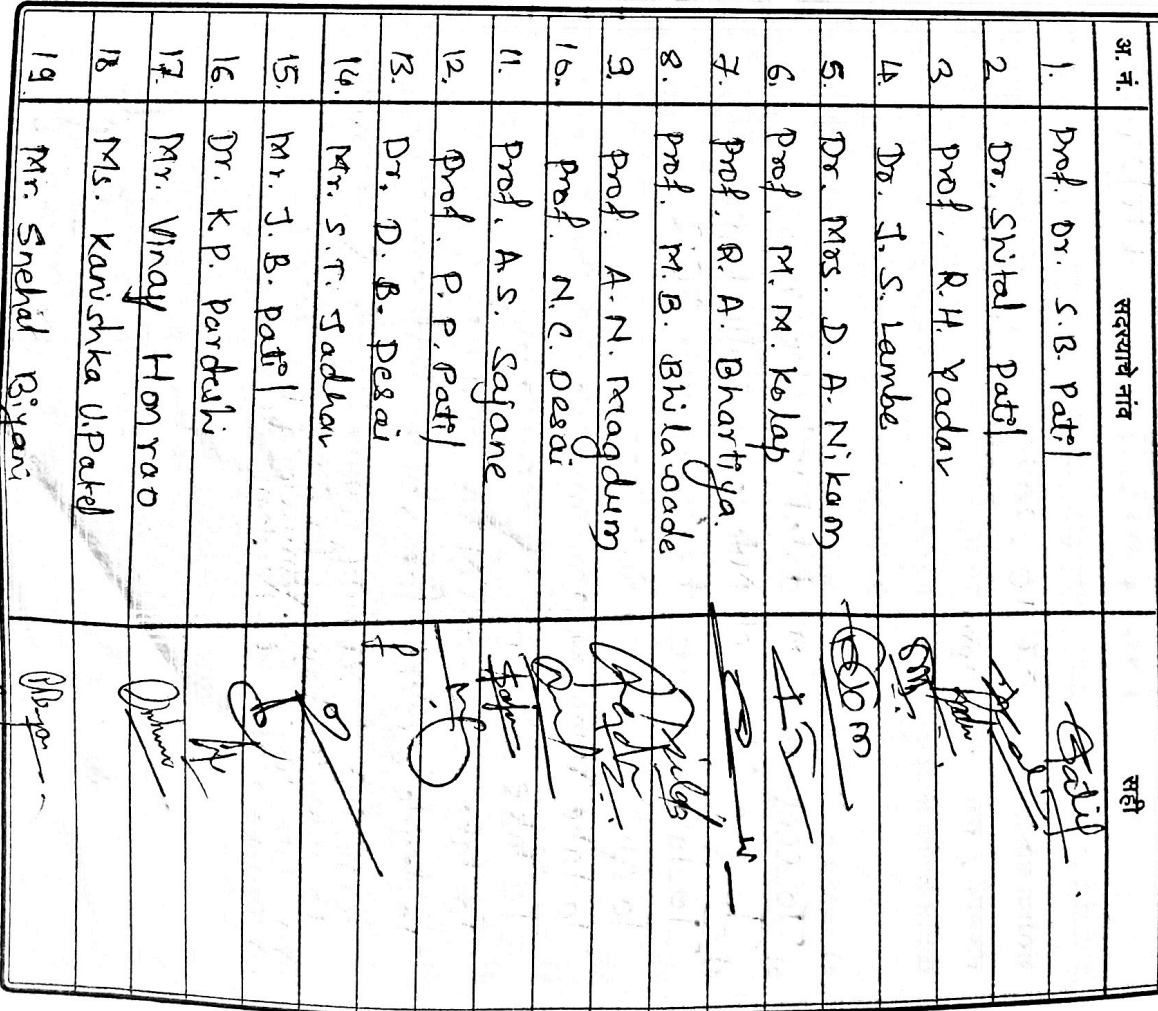 अ. नं. सदस्याचे नांव सही
1. Prof. Dr. S.B. Patil
2 Dr. Shital Patil
3 Prof. R.H. Yadav
4. Dr. J.S. Lambe
5. Dr. Mrs. D.A. Nikam
6. Prof. M.M. Kolap
7. Prof. R.A. Bhartiya.
8. Prof. M.B. Bhilawade
9. Prof. A.N. Magdum
10. Prof. N.C. Desai
11. Prof. A.S. Sajane
12. Prof. P.P. Patil
13. Dr. D.B. Desai
14. Mr. S.T. Jadhav
15. Mr. J.B. Patil
16. Dr. K.P. Pardeshi
17. Mr. Vinay Honrao
18 Ms. Kanishka U. Patel
19. Mr. Snehal Biyani